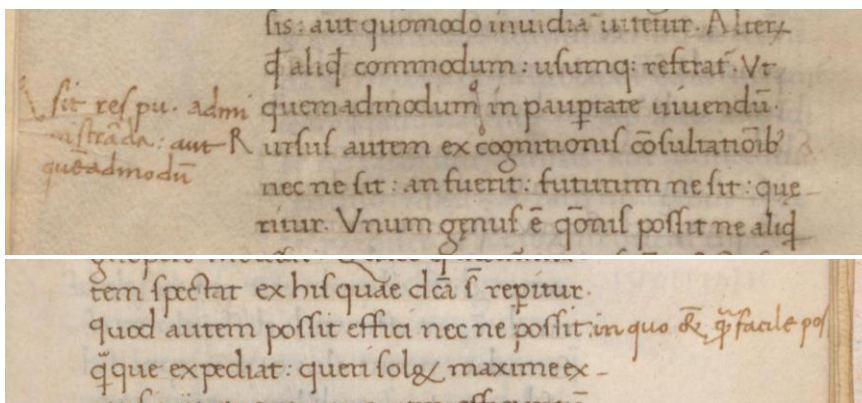 sis: aut quomodo inuidia uitetur. Alterꝝ
qđ aliqđ commodum: usumqꝫ referat. Vt
sit res pu. admi
quemadmodum in paupertate uiuendū.
nistrāda: aut
Rursus autem ex cognitionis cōsultatiōibꝰ
quēadmodū
nec ne sit: an fuerit: futurum ne sit: que-
ritur. Vnum genus ē qōnis possit ne aliqđ
tem spectat ex his quae dcā s̄ reperitur.
quod autem possit effici nec ne possit: in quo & facile pos
que expediat: queri solꝫ maxime ex-